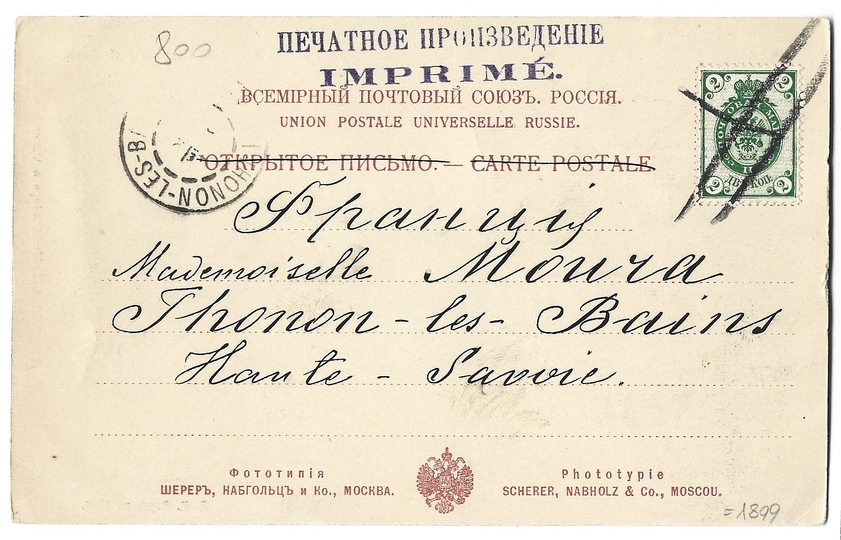 800
ПЕЧАТНОЕ ПРОИЗВЕДЕНІЕ
IMPRIMÉ.
ВСЕМІРНЫЙ ПОЧТОВЫЙ СОЮЗЪ. РОССІЯ.
UNION POSTALE UNIVERSELLE RUSSIE.
ОТКРЫТОЕ ПИСЬМО. — CARTE POSTALE
THONON-LES-BA
2 2
2 ДВѢ КОП. 2
Франція
Mademoiselle Moura
Thonon-les-Bains
Haute-Savoie.
Фототипія
ШЕРЕРЪ, НАБГОЛЬЦЪ и Ко., МОСКВА.
Phototypie
SCHERER, NABHOLZ & Co., MOSCOU.
=1899